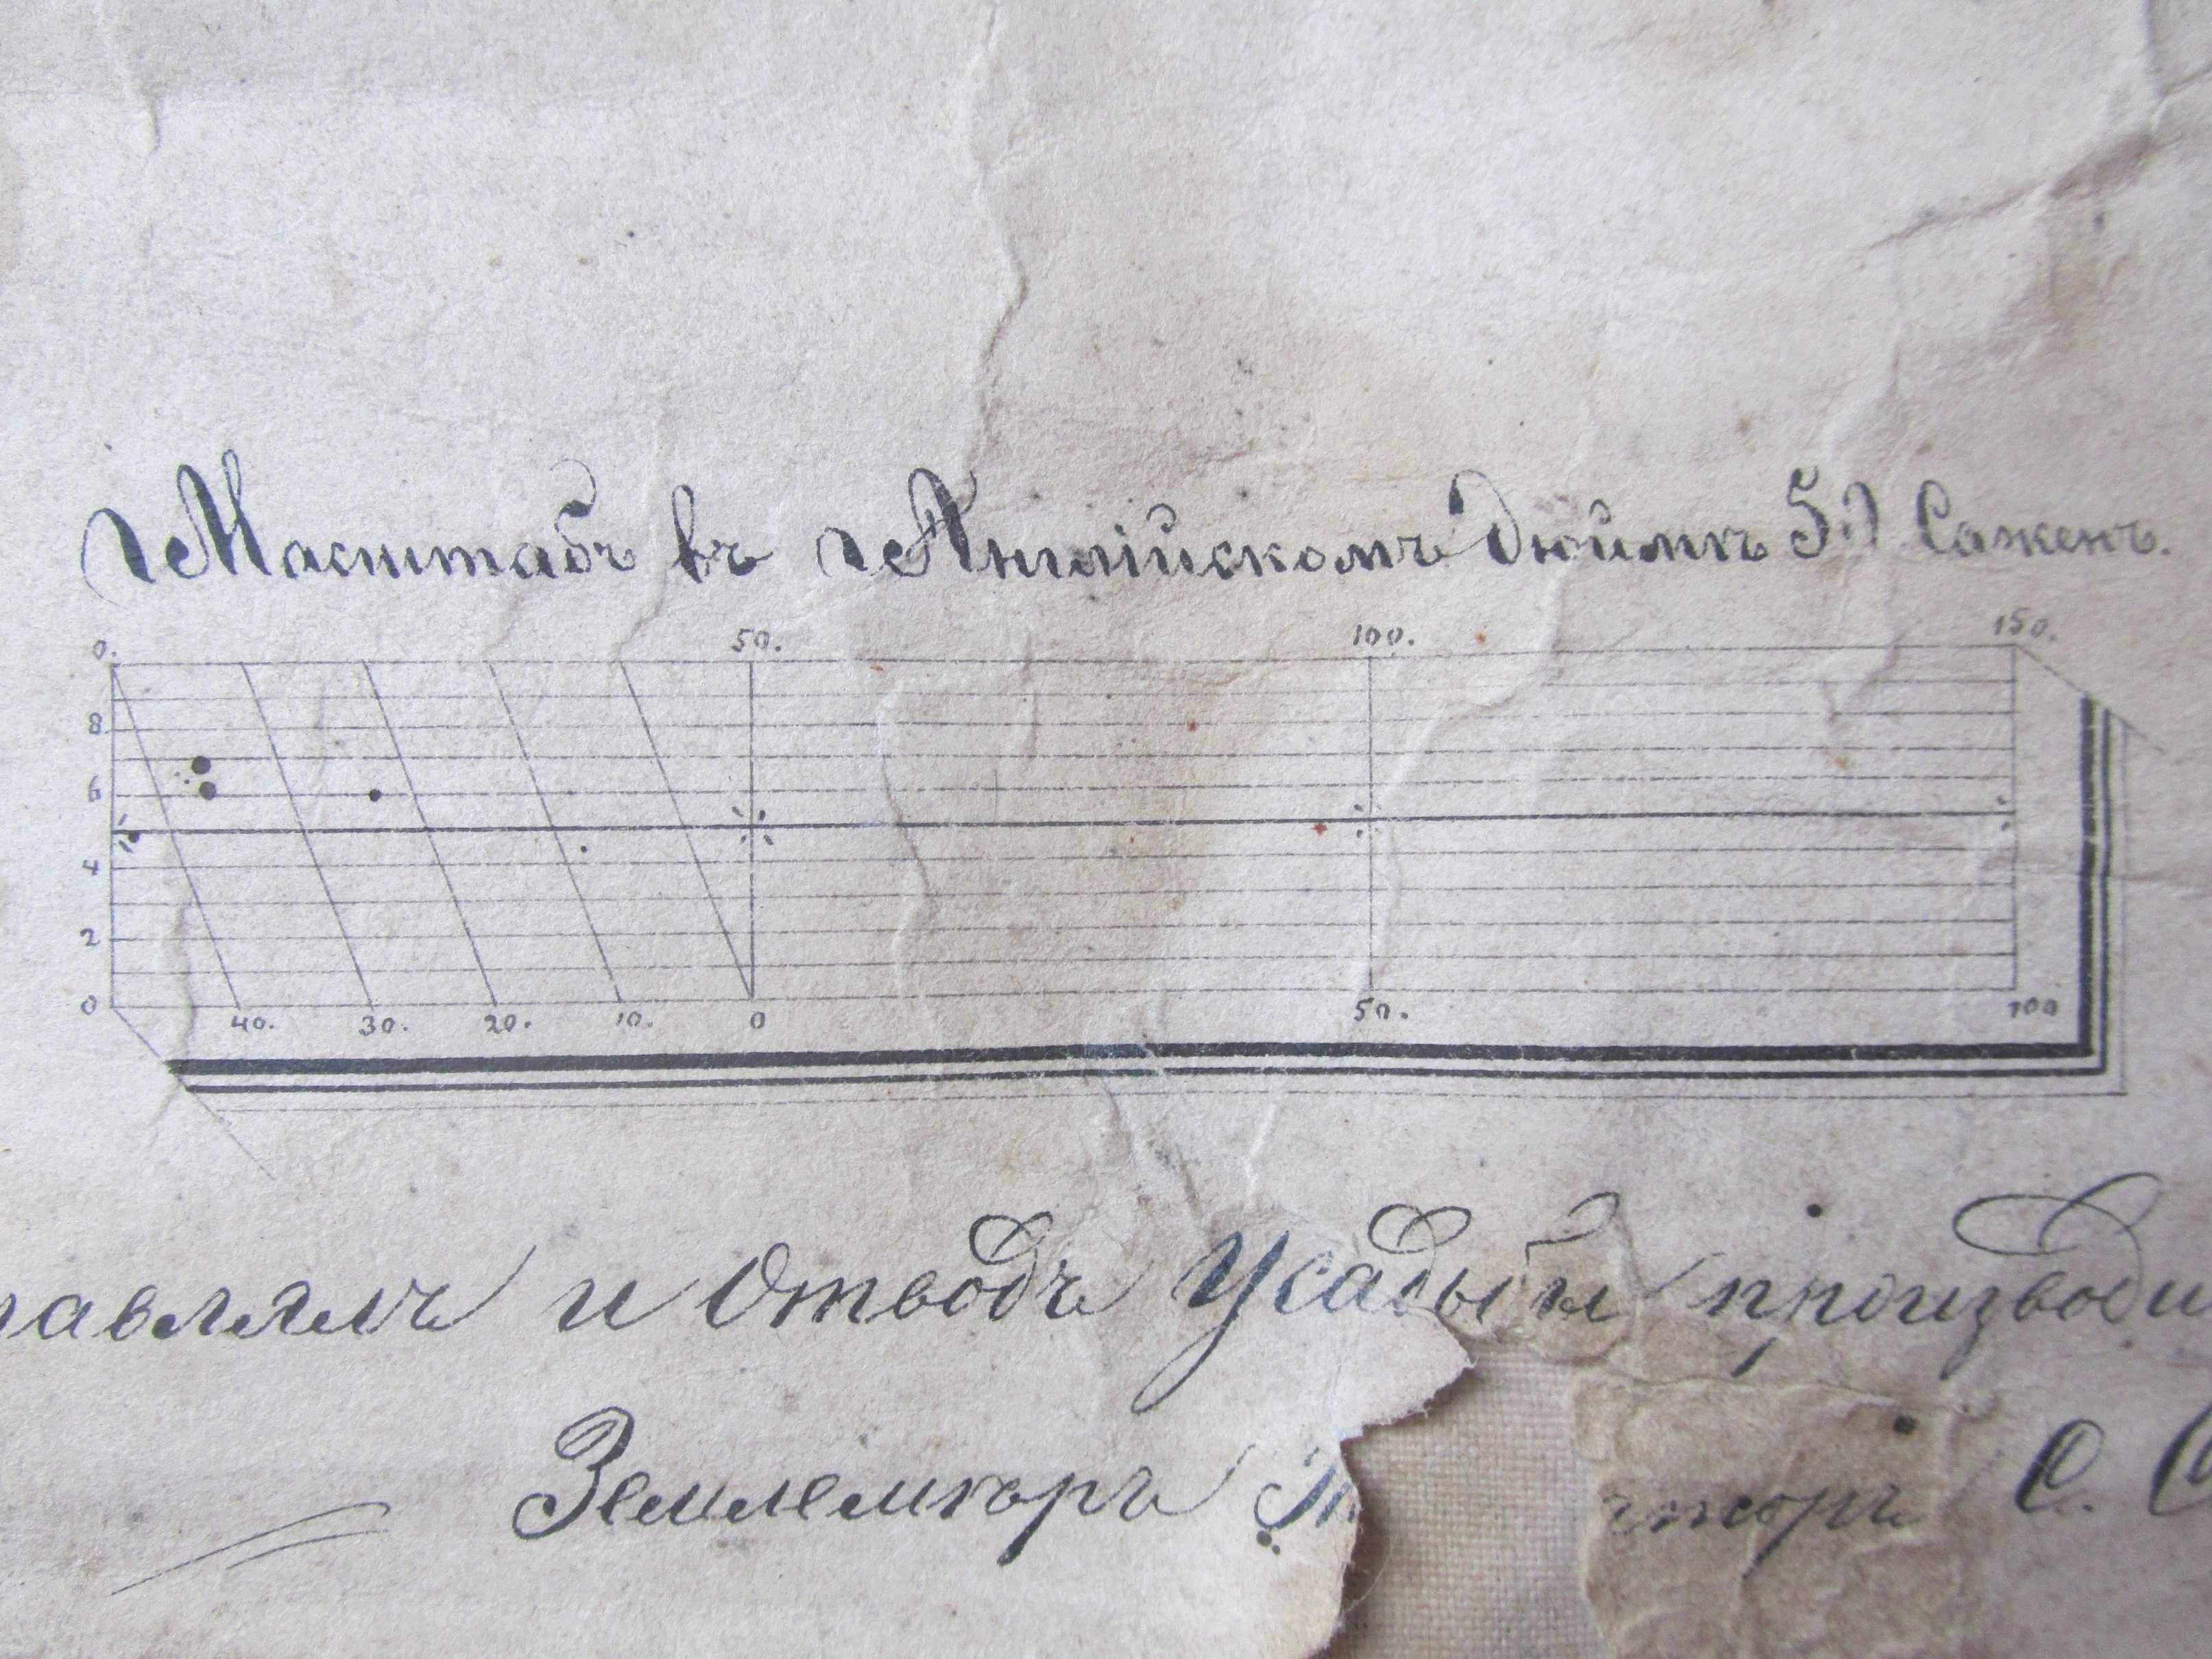 Масштабъ въ Англійскомъ дюймѣ 50 Сажень.
0. 50. 100. 150.
8
6
4
2
0
40. 30. 20. 10. 0 50. 100
и Отводъ Усадьбы
Землемѣръ С.